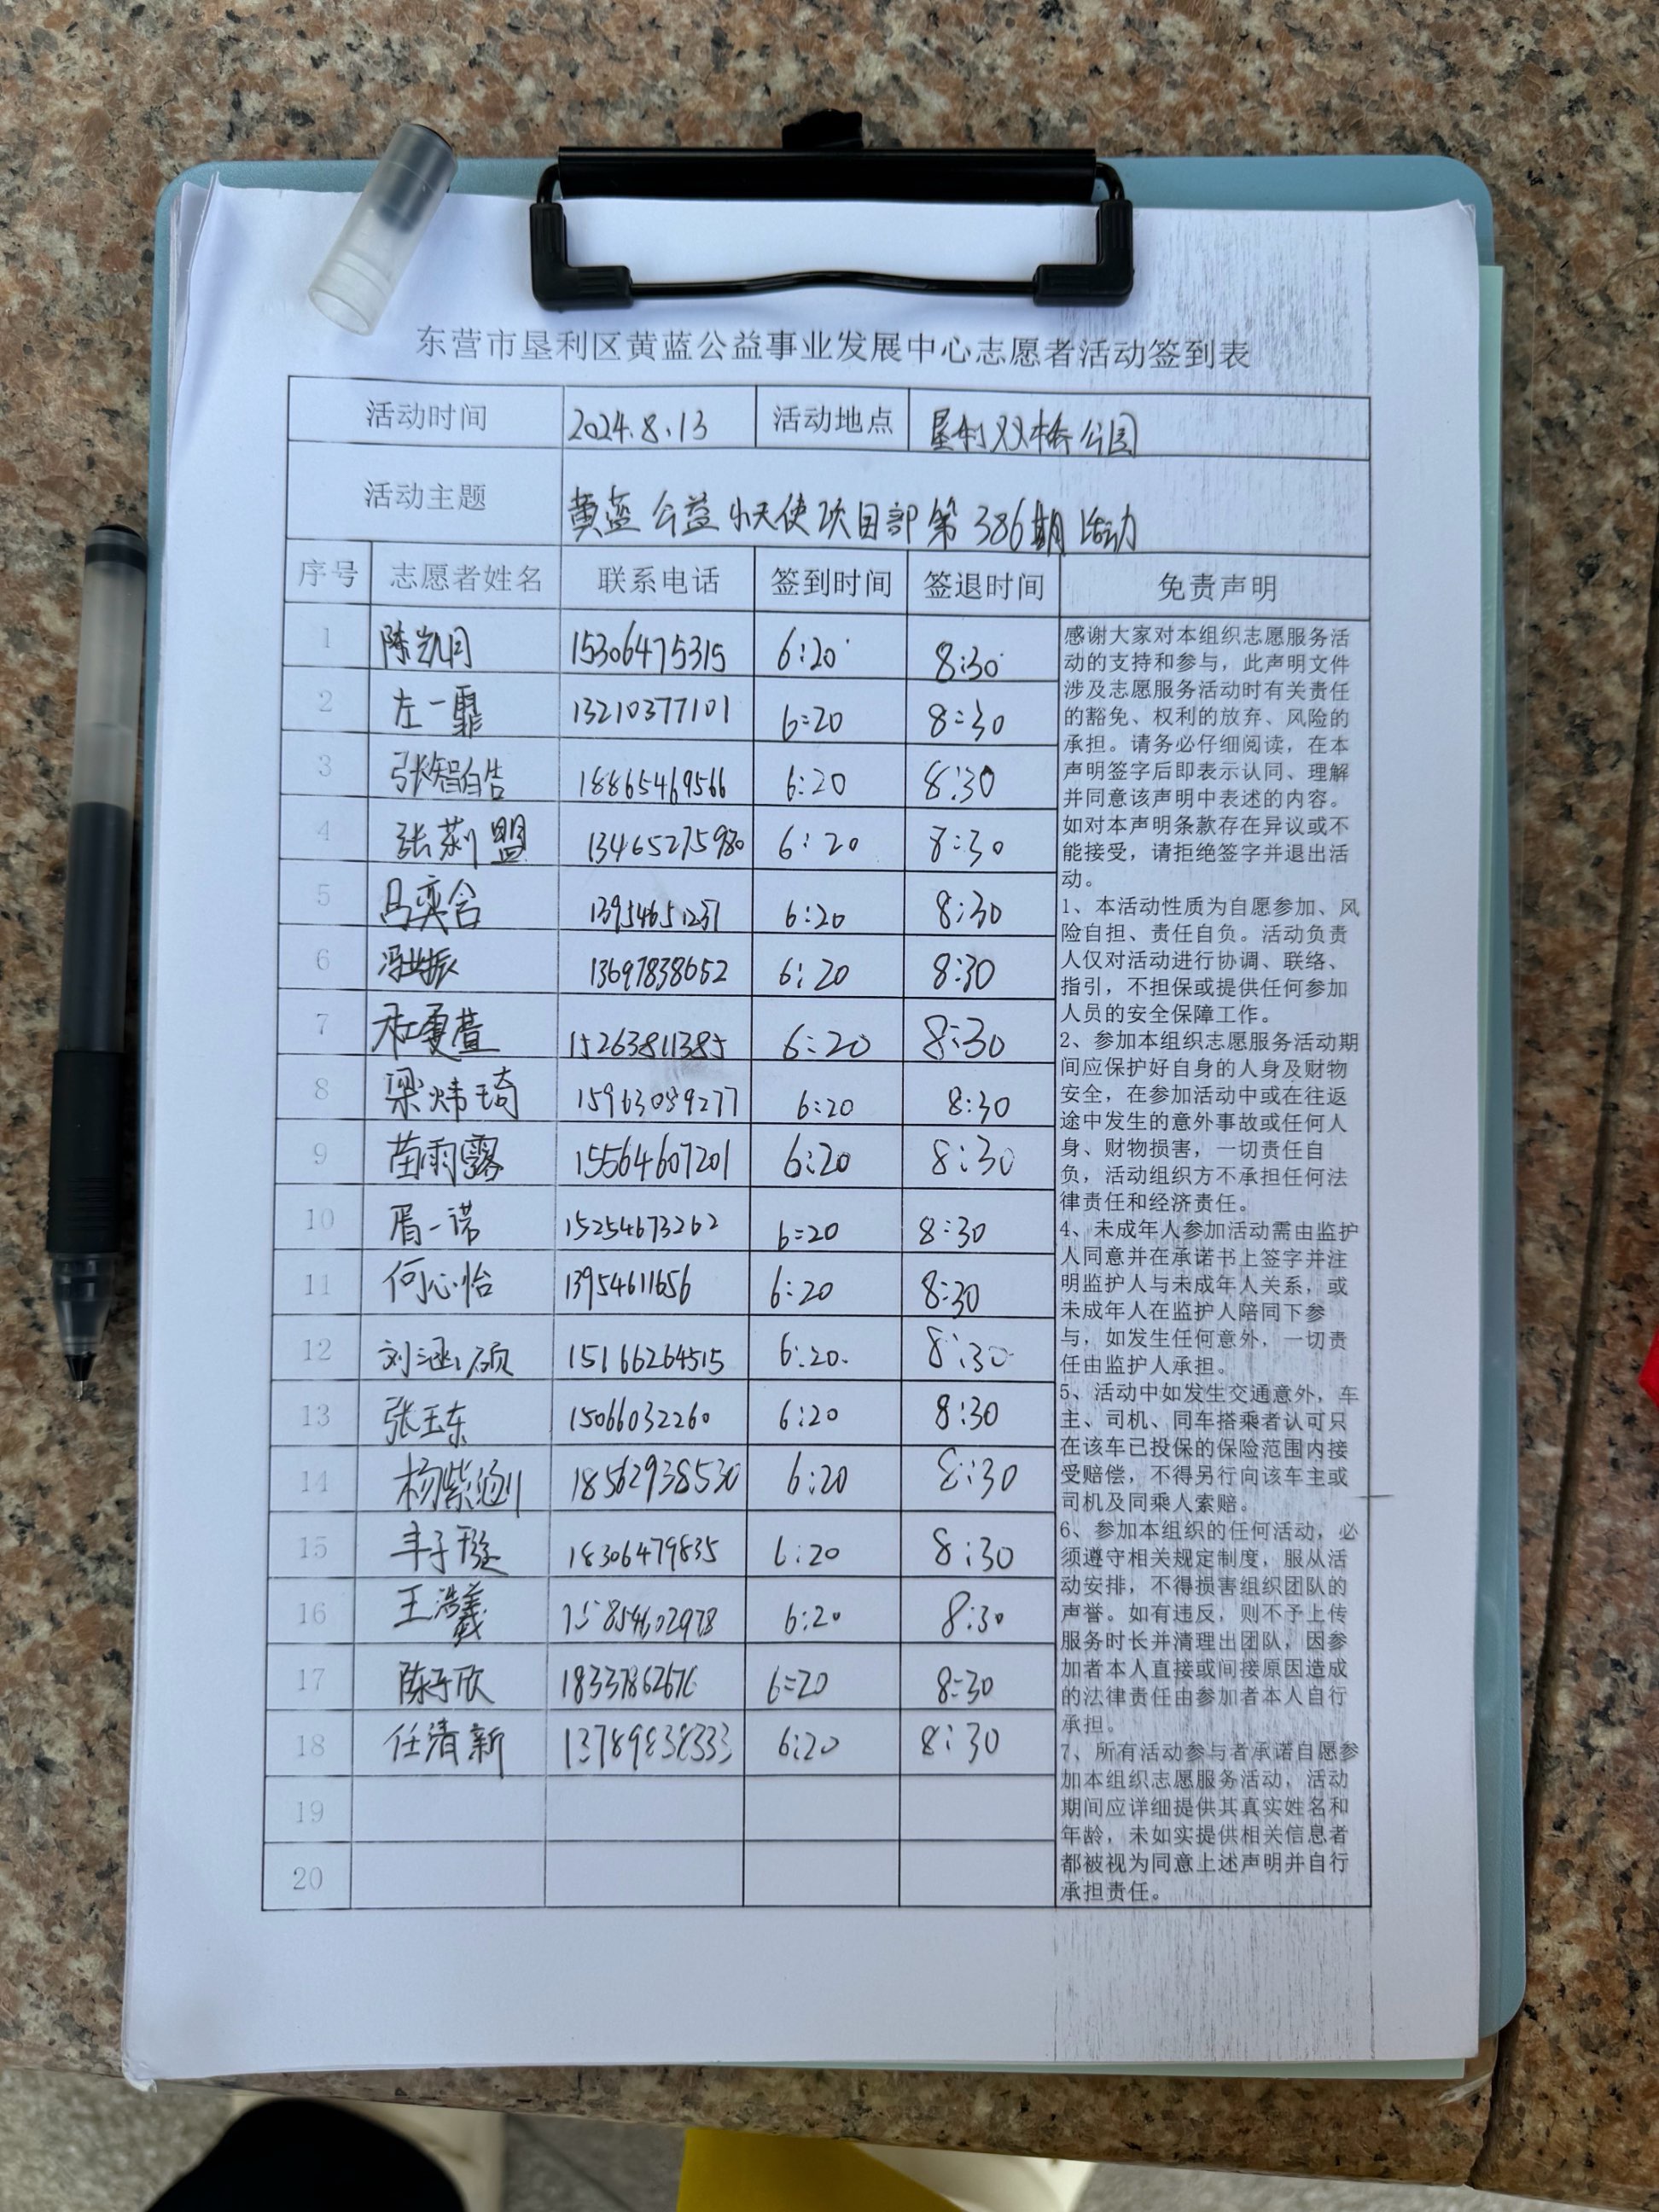 东营市垦利区黄蓝公益事业发展中心志愿者活动签到表
活动时间 2024.8.13 活动地点 垦利双桥公园
活动主题 黄蓝公益小天使项目部第386期活动
序号 志愿者姓名 联系电话 签到时间 签退时间 免责声明
1 陈凯月 15306475315 6:20 8:30
2 左一霏 13210377101 6:20 8:30
3 张智皓 18865469566 6:20 8:30
4 张莉盟 13465275980 6:20 8:30
5 吕奕含 13954651237 6:20 8:30
6 冯世振 13697838652 6:20 8:30
7 杜夏萱 15263811385 6:20 8:30
8 梁炜琦 15963059277 6:20 8:30
9 苗雨露 15564607201 6:20 8:30
10 胥一诺 15254673262 6:20 8:30
11 何心怡 13954611656 6:20 8:30
12 刘涵硕 15166264515 6:20 8:30
13 张玉东 15066032260 6:20 8:30
14 杨紫涵 18562938530 6:20 8:30
15 丰子璇 18306479835 6:20 8:30
16 王浩羲 15854602978 6:20 8:30
17 陈子欣 18337862676 6:20 8:30
18 任清新 13789838333 6:20 8:30
19
20
感谢大家对本组织志愿服务活
动的支持和参与，此声明文件
涉及志愿服务活动时有关责任
的豁免、权利的放弃、风险的
承担。请务必仔细阅读，在本
声明签字后即表示认同、理解
并同意该声明中表述的内容。
如对本声明条款存在异议或不
能接受，请拒绝签字并退出活
动。
1、本活动性质为自愿参加、风
险自担、责任自负。活动负责
人仅对活动进行协调、联络、
指引，不担保或提供任何参加
人员的安全保障工作。
2、参加本组织志愿服务活动期
间应保护好自身的人身及财物
安全，在参加活动中或在往返
途中发生的意外事故或任何人
身、财物损害，一切责任自
负，活动组织方不承担任何法
律责任和经济责任。
4、未成年人参加活动需由监护
人同意并在承诺书上签字并注
明监护人与未成年人关系，或
未成年人在监护人陪同下参
与，如发生任何意外，一切责
任由监护人承担。
5、活动中如发生交通意外，车
主、司机、同车搭乘者认可只
在该车已投保的保险范围内接
受赔偿，不得另行向该车主或
司机及同乘人索赔。
6、参加本组织的任何活动，必
须遵守相关规定制度，服从活
动安排，不得损害组织团队的
声誉。如有违反，则不予上传
服务时长并清理出团队，因参
加者本人直接或间接原因造成
的法律责任由参加者本人自行
承担。
7、所有活动参与者承诺自愿参
加本组织志愿服务活动，活动
期间应详细提供其真实姓名和
年龄，未如实提供相关信息者
都被视为同意上述声明并自行
承担责任。